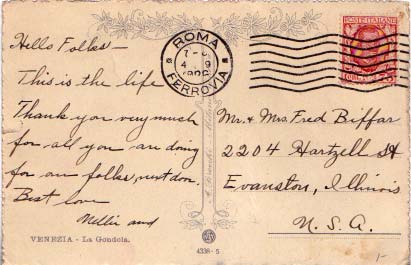 Hello Folks —
This is the life
Thank you very much
for all you are doing
for our folks, next door.
Best love
Nellie and
VENEZIA - La Gondola.
4336-5
ROMA
FERROVIA
POSTE ITALIANE
Mr. & Mrs. Fred Biffar
2204 Hartzell St
Evanston, Illinois
U.S.A.